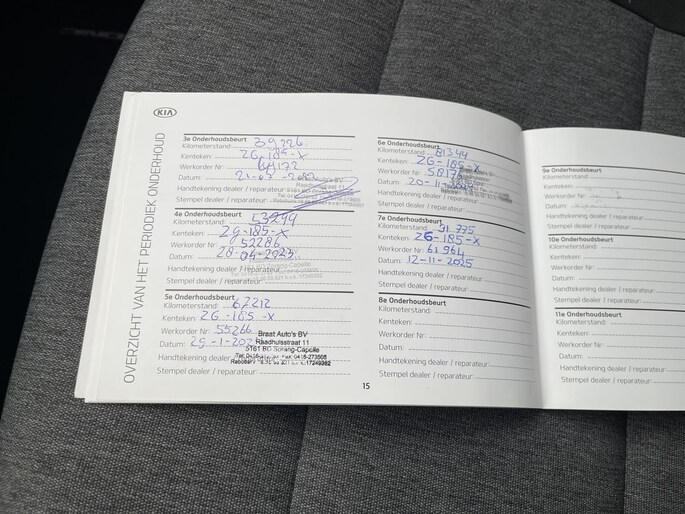 KIA
OVERZICHT VAN HET PERIODIEK ONDERHOUD
3e Onderhoudsbeurt
Kilometerstand: 39226
Kenteken: ZG-185-X
Werkorder Nr:
Datum:
Handtekening dealer / reparateur:
Stempel dealer / reparateur:
4e Onderhoudsbeurt
Kilometerstand: 53244
Kenteken: ZG-185-X
Werkorder Nr: 52286
Datum: 28-04-2023
Handtekening dealer / reparateur:
Stempel dealer / reparateur:
5e Onderhoudsbeurt
Kilometerstand: 67212
Kenteken: ZG-185-X
Werkorder Nr: 55266
Datum: 29-1-202
Braat Auto's BV
Raadhuisstraat 11
5161 BG Sprang-Capelle
Handtekening dealer / reparateur:
Stempel dealer / reparateur:
6e Onderhoudsbeurt
Kilometerstand: 81344
Kenteken: ZG-185-X
Werkorder Nr:
Datum: 20-11-
Handtekening dealer / reparateur:
Stempel dealer / reparateur:
7e Onderhoudsbeurt
Kilometerstand: 91.775
Kenteken: ZG-185-X
Werkorder Nr: 61964
Datum: 12-11-2025
Handtekening dealer / reparateur:
Stempel dealer / reparateur:
8e Onderhoudsbeurt
Kilometerstand:
Kenteken:
Werkorder Nr:
Datum:
Handtekening dealer / reparateur:
Stempel dealer / reparateur:
15
9e Onderhoudsbeurt
Kilometerstand:
Kenteken:
Werkorder Nr:
Datum:
Handtekening dealer / reparateur:
Stempel dealer / reparateur:
10e Onderhoudsbeurt
Kilometerstand:
Kenteken:
Werkorder Nr:
Datum:
Handtekening dealer / reparateur:
Stempel dealer / reparateur:
11e Onderhoudsbeurt
Kilometerstand:
Kenteken:
Werkorder Nr:
Datum:
Handtekening dealer / reparateur:
Stempel dealer / reparateur: